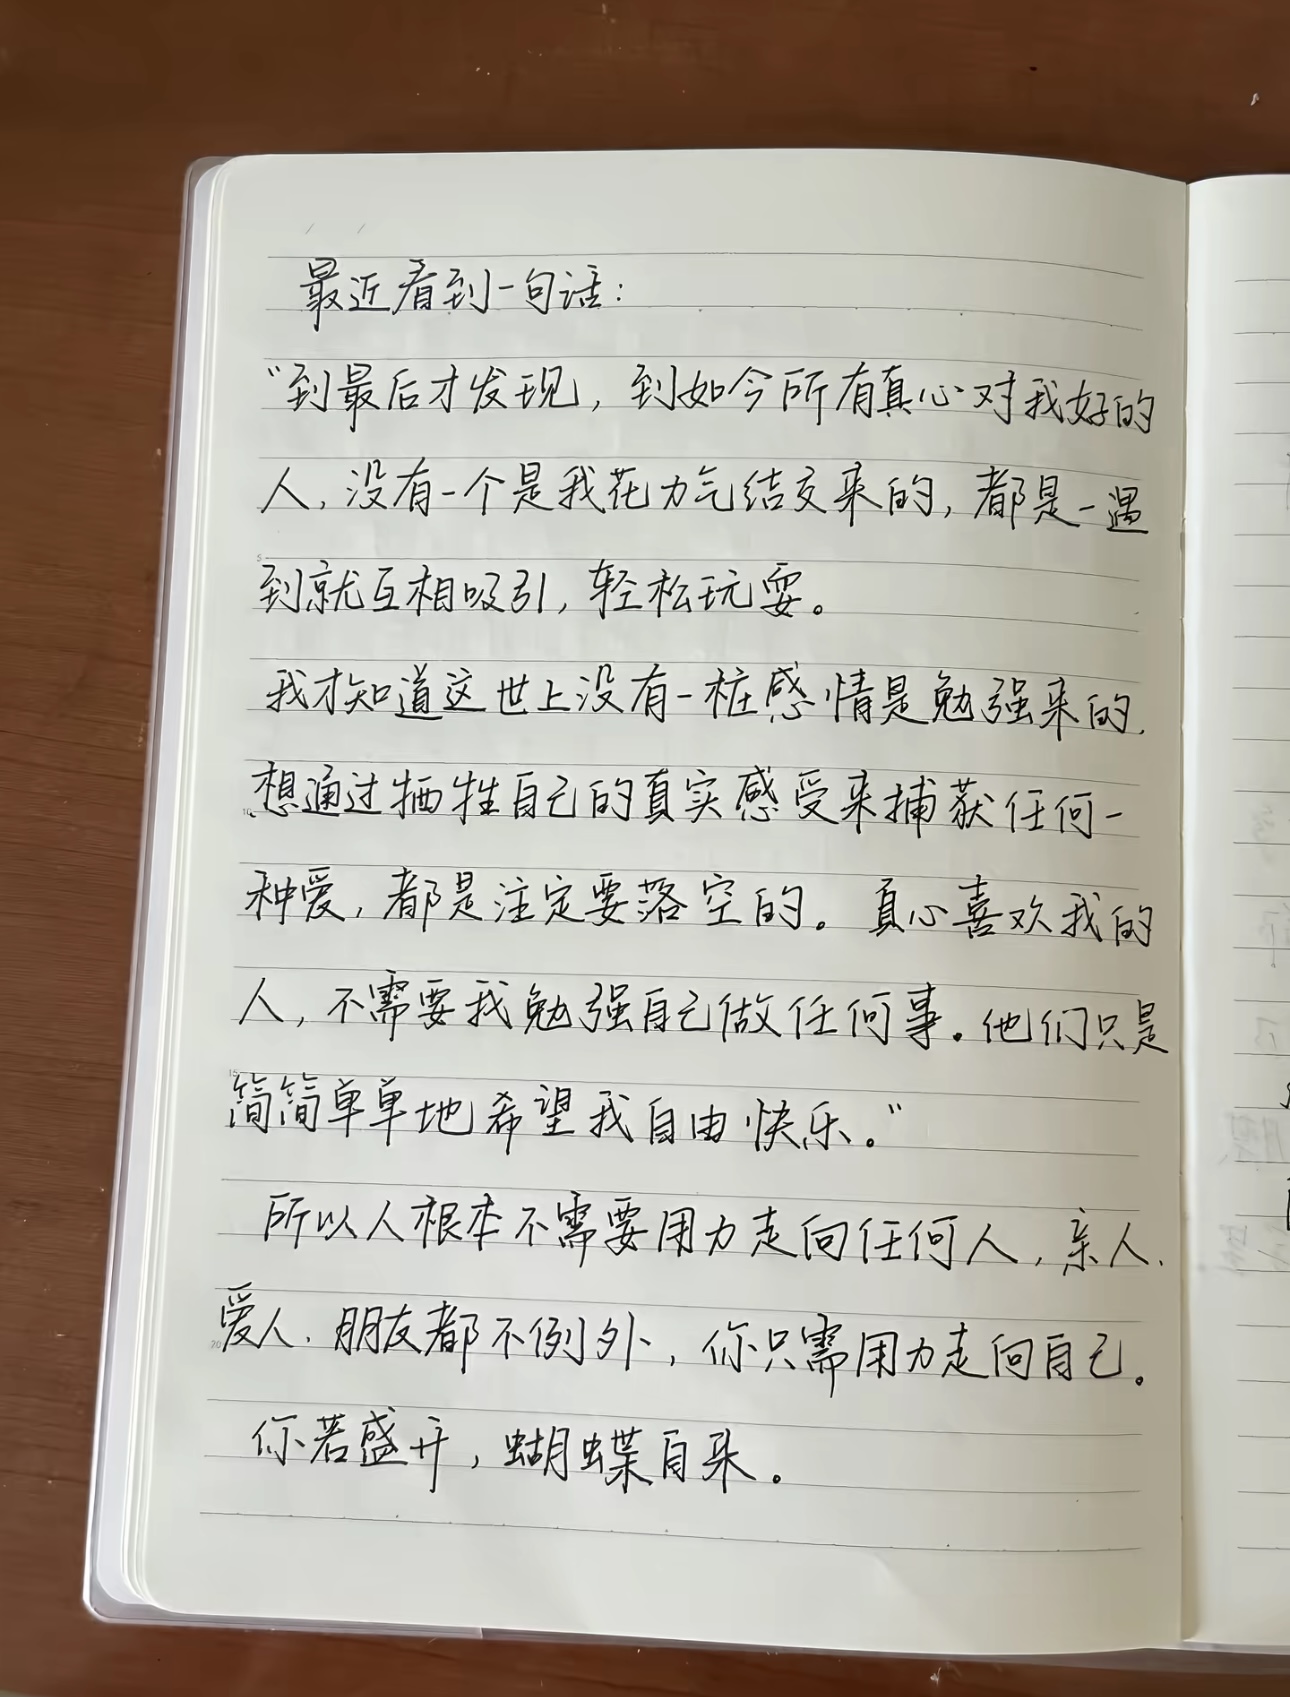 最近看到一句话：
“到最后才发现，到如今所有真心对我好的
人，没有一个是我花力气结交来的，都是一遇
到就互相吸引，轻松玩耍。
我才知道这世上没有一桩感情是勉强来的，
想通过牺牲自己的真实感受来捕获任何一
种爱，都是注定要落空的。真心喜欢我的
人，不需要我勉强自己做任何事。他们只是
简简单单地希望我自由快乐。”
所以人根本不需要用力走向任何人，亲人、
爱人、朋友都不例外，你只需用力走向自己。
你若盛开，蝴蝶自来。